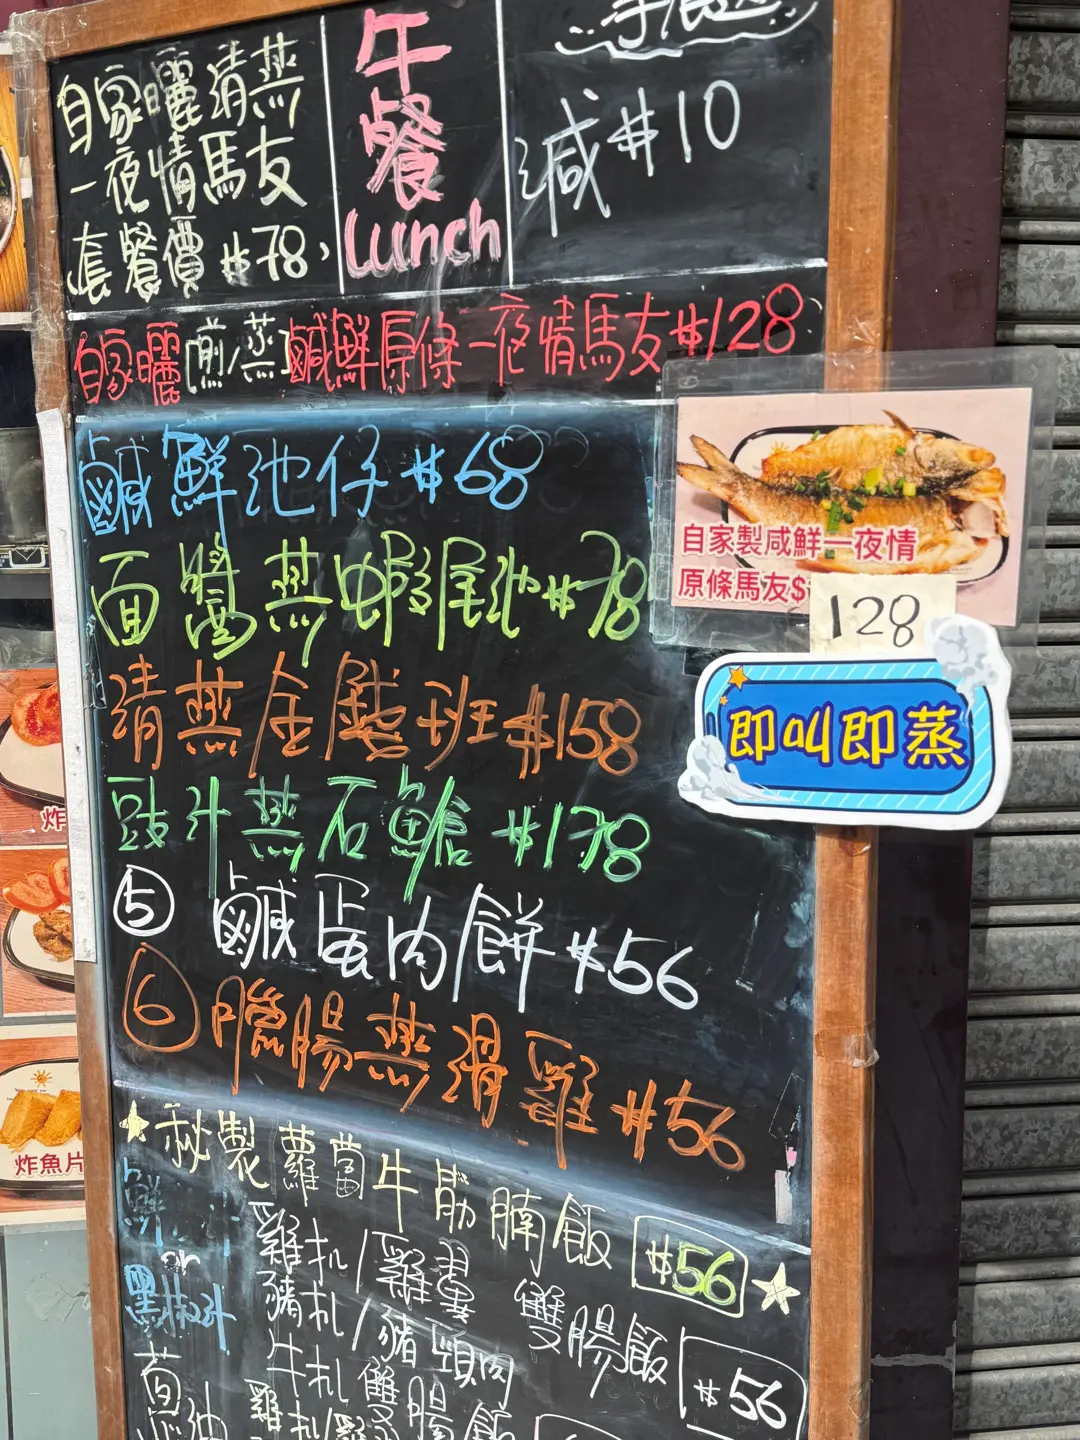 自家曬清蒸
一夜情馬友
套餐價$78
午餐
Lunch
減$10
自家曬[煎/蒸]鹹鮮原條一夜情馬友$128
鹹鮮池仔$68
面醬蒸蝦尾池$78
清蒸金鼓班$158
豉汁蒸石鱼仓$178
⑤ 鹹蛋肉餅$56
⑥ 臘腸蒸滑雞$56
自家製咸鮮一夜情
原條馬友$
128
即叫即蒸
★秘製蘿蔔牛筋腩飯 $56 ★
鮮
or
黑椒汁
雞扒/雞
豬扒/豬頸肉
牛扒 雙腸飯
雞扒
雙腸飯 $56
炸
炸魚片